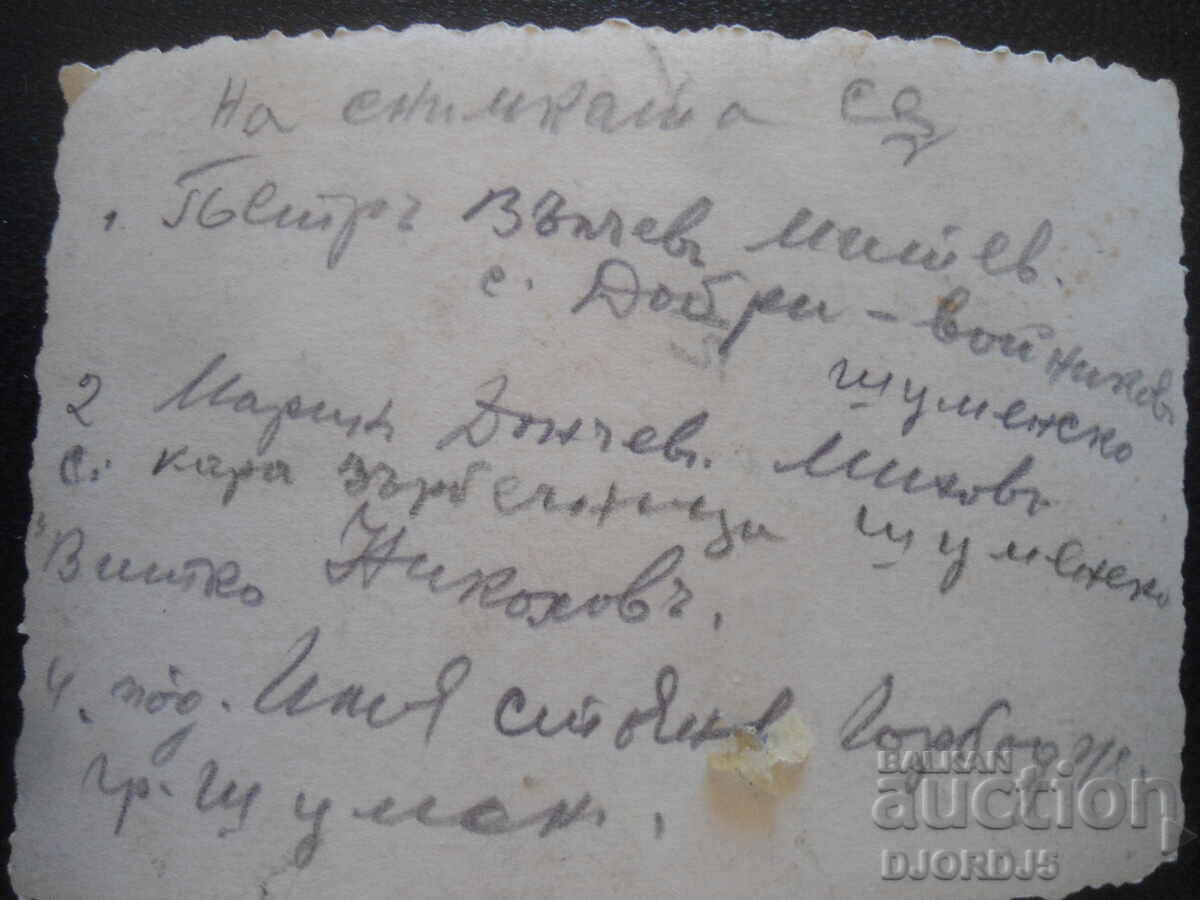 На снимката сѫ
1. Петръ Вълчевъ Митев.
с. Добри-войниковъ
Шуменско
2 Марин Дончев. Миховъ
с. кара Върбешница Шуменско
" Витко Николовъ.
4. под. Илия Стоянов
гр. Шумен.
BALKAN
auction
DJORDJ5